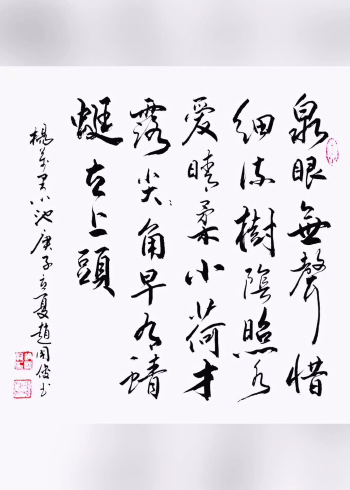 泉眼無聲惜
细流樹陰照水
爱晴柔小荷才
露尖々角早有蜻
蜓立上頭
楊萬里小池庚子立夏趙国俊书